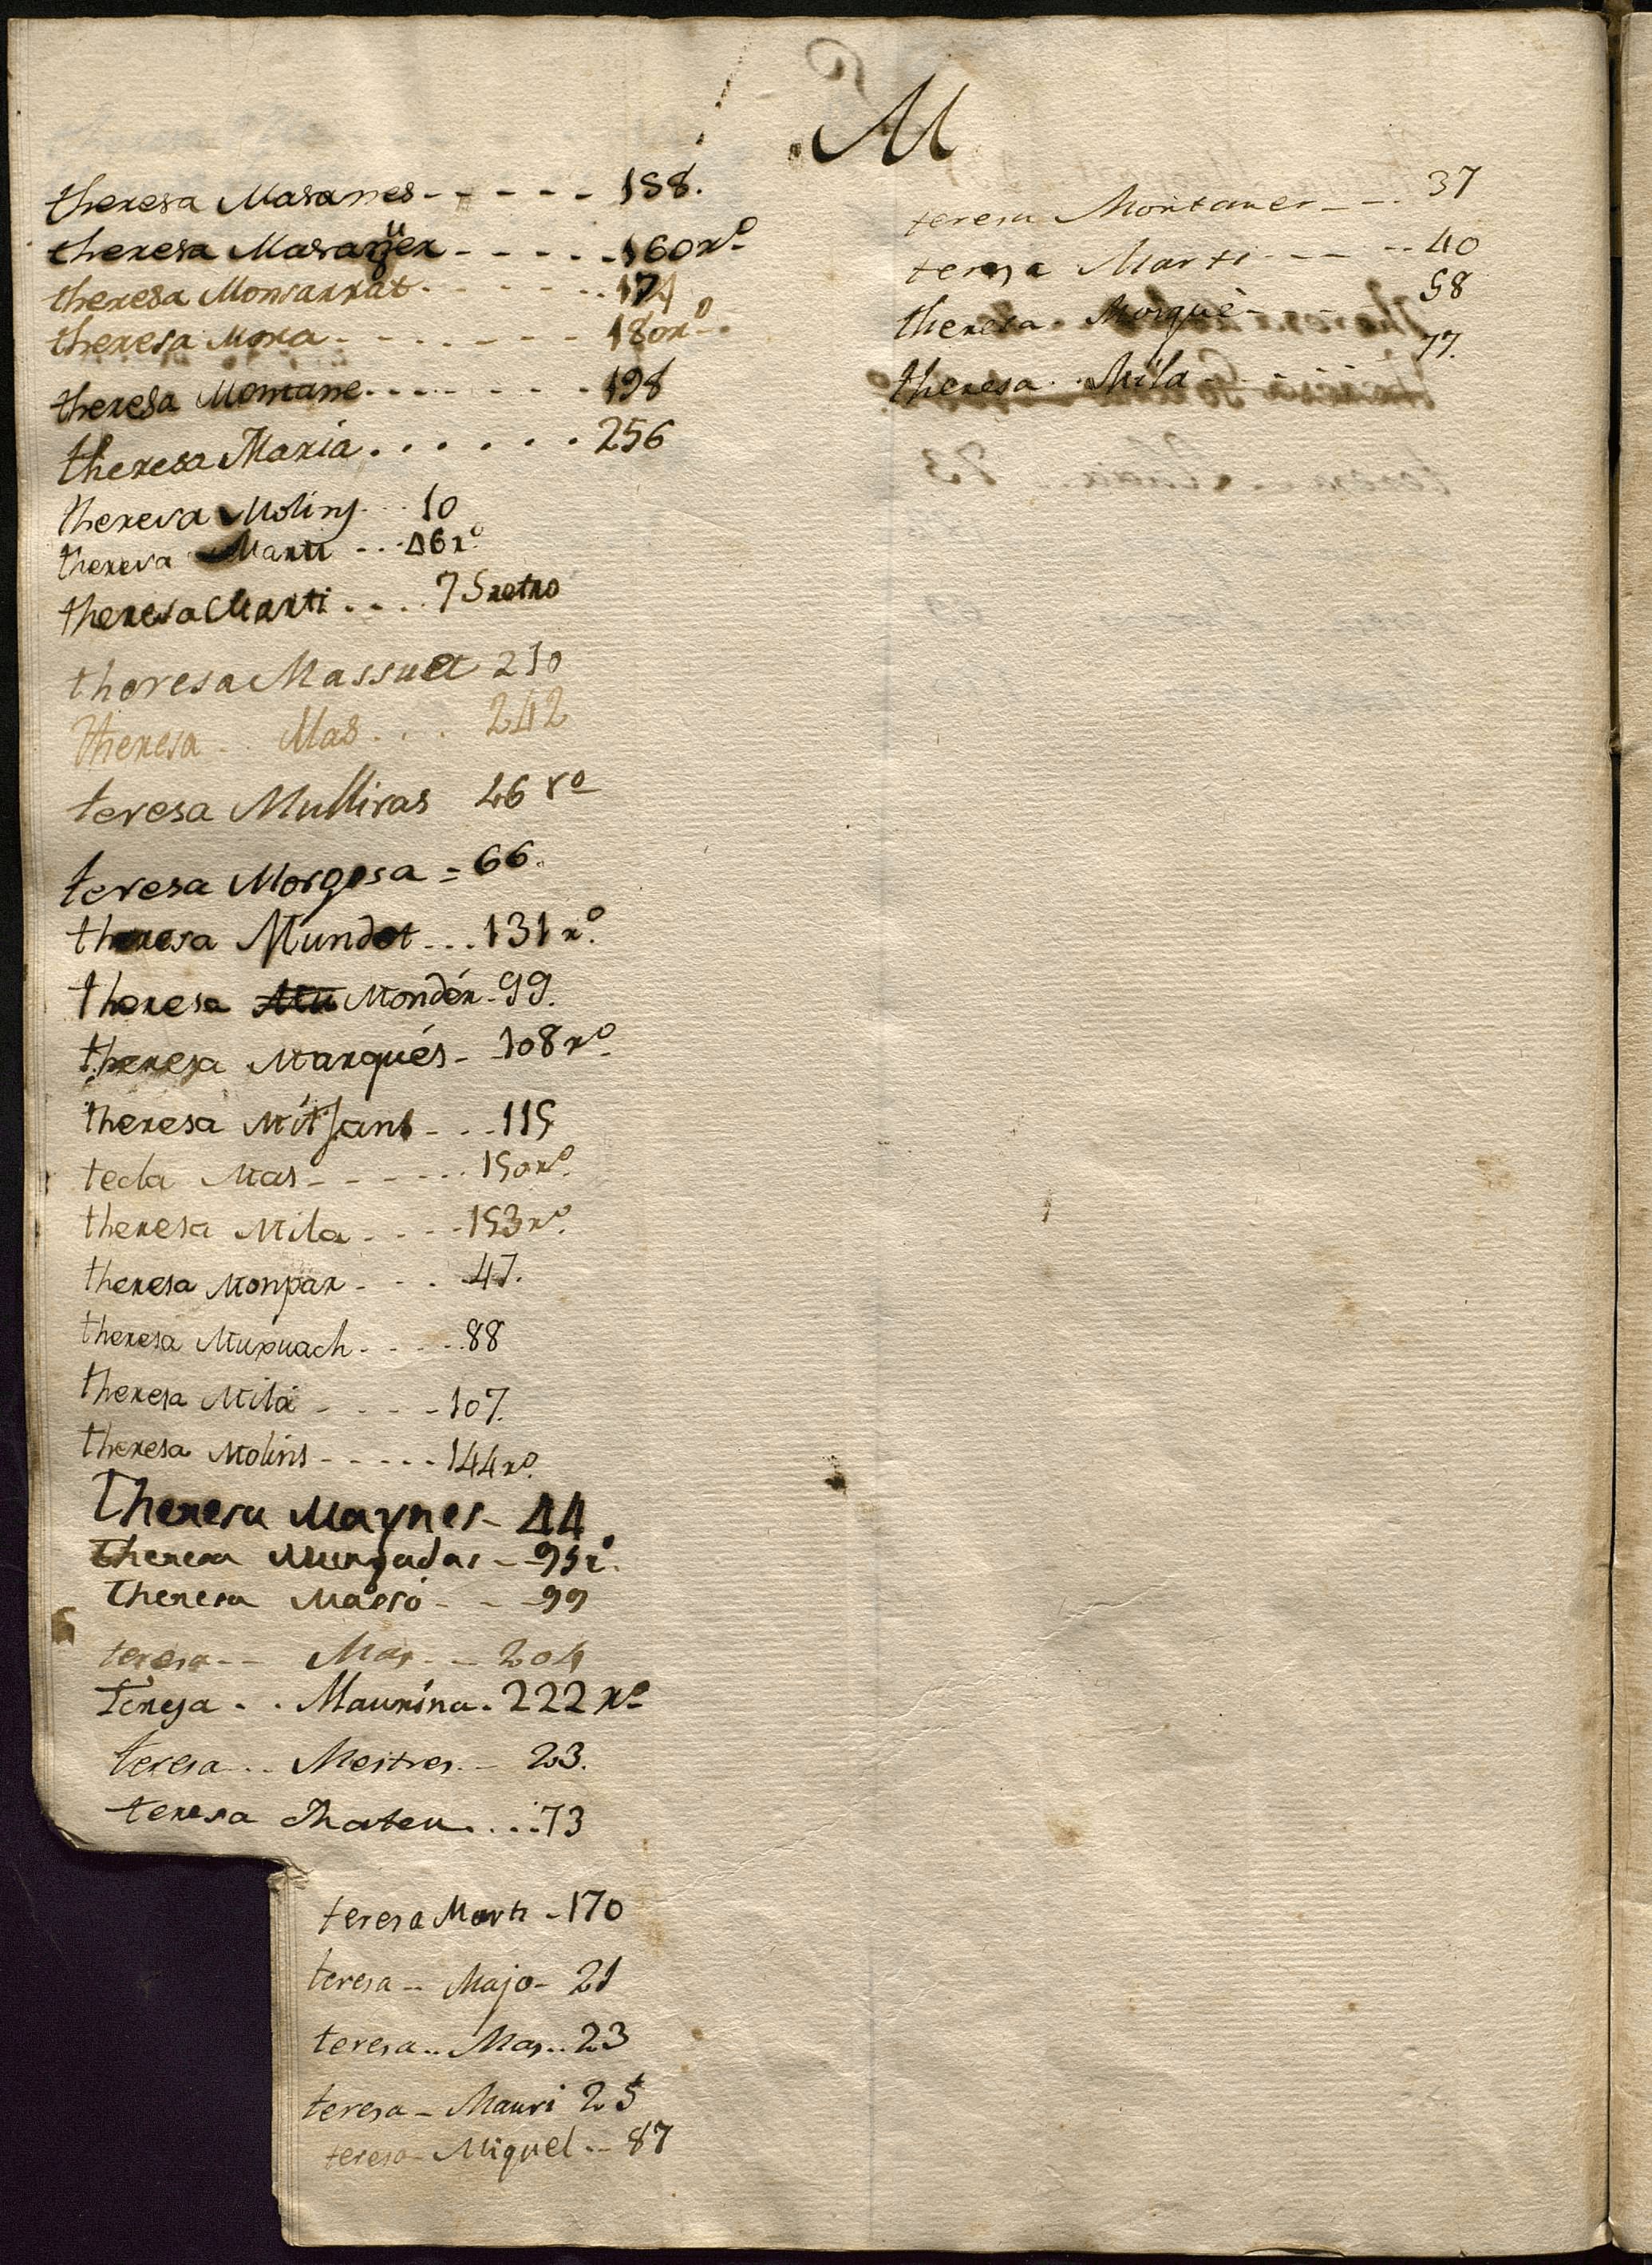 M
theresa Masanes - - - - - 158.
theresa Masaguer - - - - - 160 rº
theresa Monsarrat - - - - - - 174
theresa Mora - - - - - - - 180 rº.
theresa Montane - - - - - - - 198
theresa Maria . . . . . . 256
theresa Molins . . . 10
theresa Marti - - . 46 rº
theresa Marti . . . . 75 retro
theresa Massuet 210
theresa . . Mas . . . 242
teresa Mulliras 26 rº
teresa Morgosa = 66.
theresa Mundet . . . 131 rº.
theresa Mondér - 99.
theresa Marqués - 108 rº
theresa Mitjans - . . 115
tecla Mas - - - - . . . 150 rº.
theresa Mila - . - - 153 rº.
theresa Monpar - . . 47.
theresa Muxuach . . . . . 88
theresa Milá - . - - 107.
theresa Molins - - - - - 144 rº.
Theresa Maynes - 44.
Theresa Mungadas - - 95 rº.
Theresa Massó - - - 99
teresa - - Mas - - 204
Teresa . . Maurína . 222 rº
teresa . . Mestres . - 23.
teresa Mateu . . . . 73
teresa Marti - 170
teresa - - Majo - 21
teresa . . Mas . . 23
teresa - Mauri 25
teresa - Miquel . - 87
teresa Montaner - - . 37
teresa Marti - - - - - 40
theresa . Morgué - - - 58
theresa . . Milá . . - - - 77.